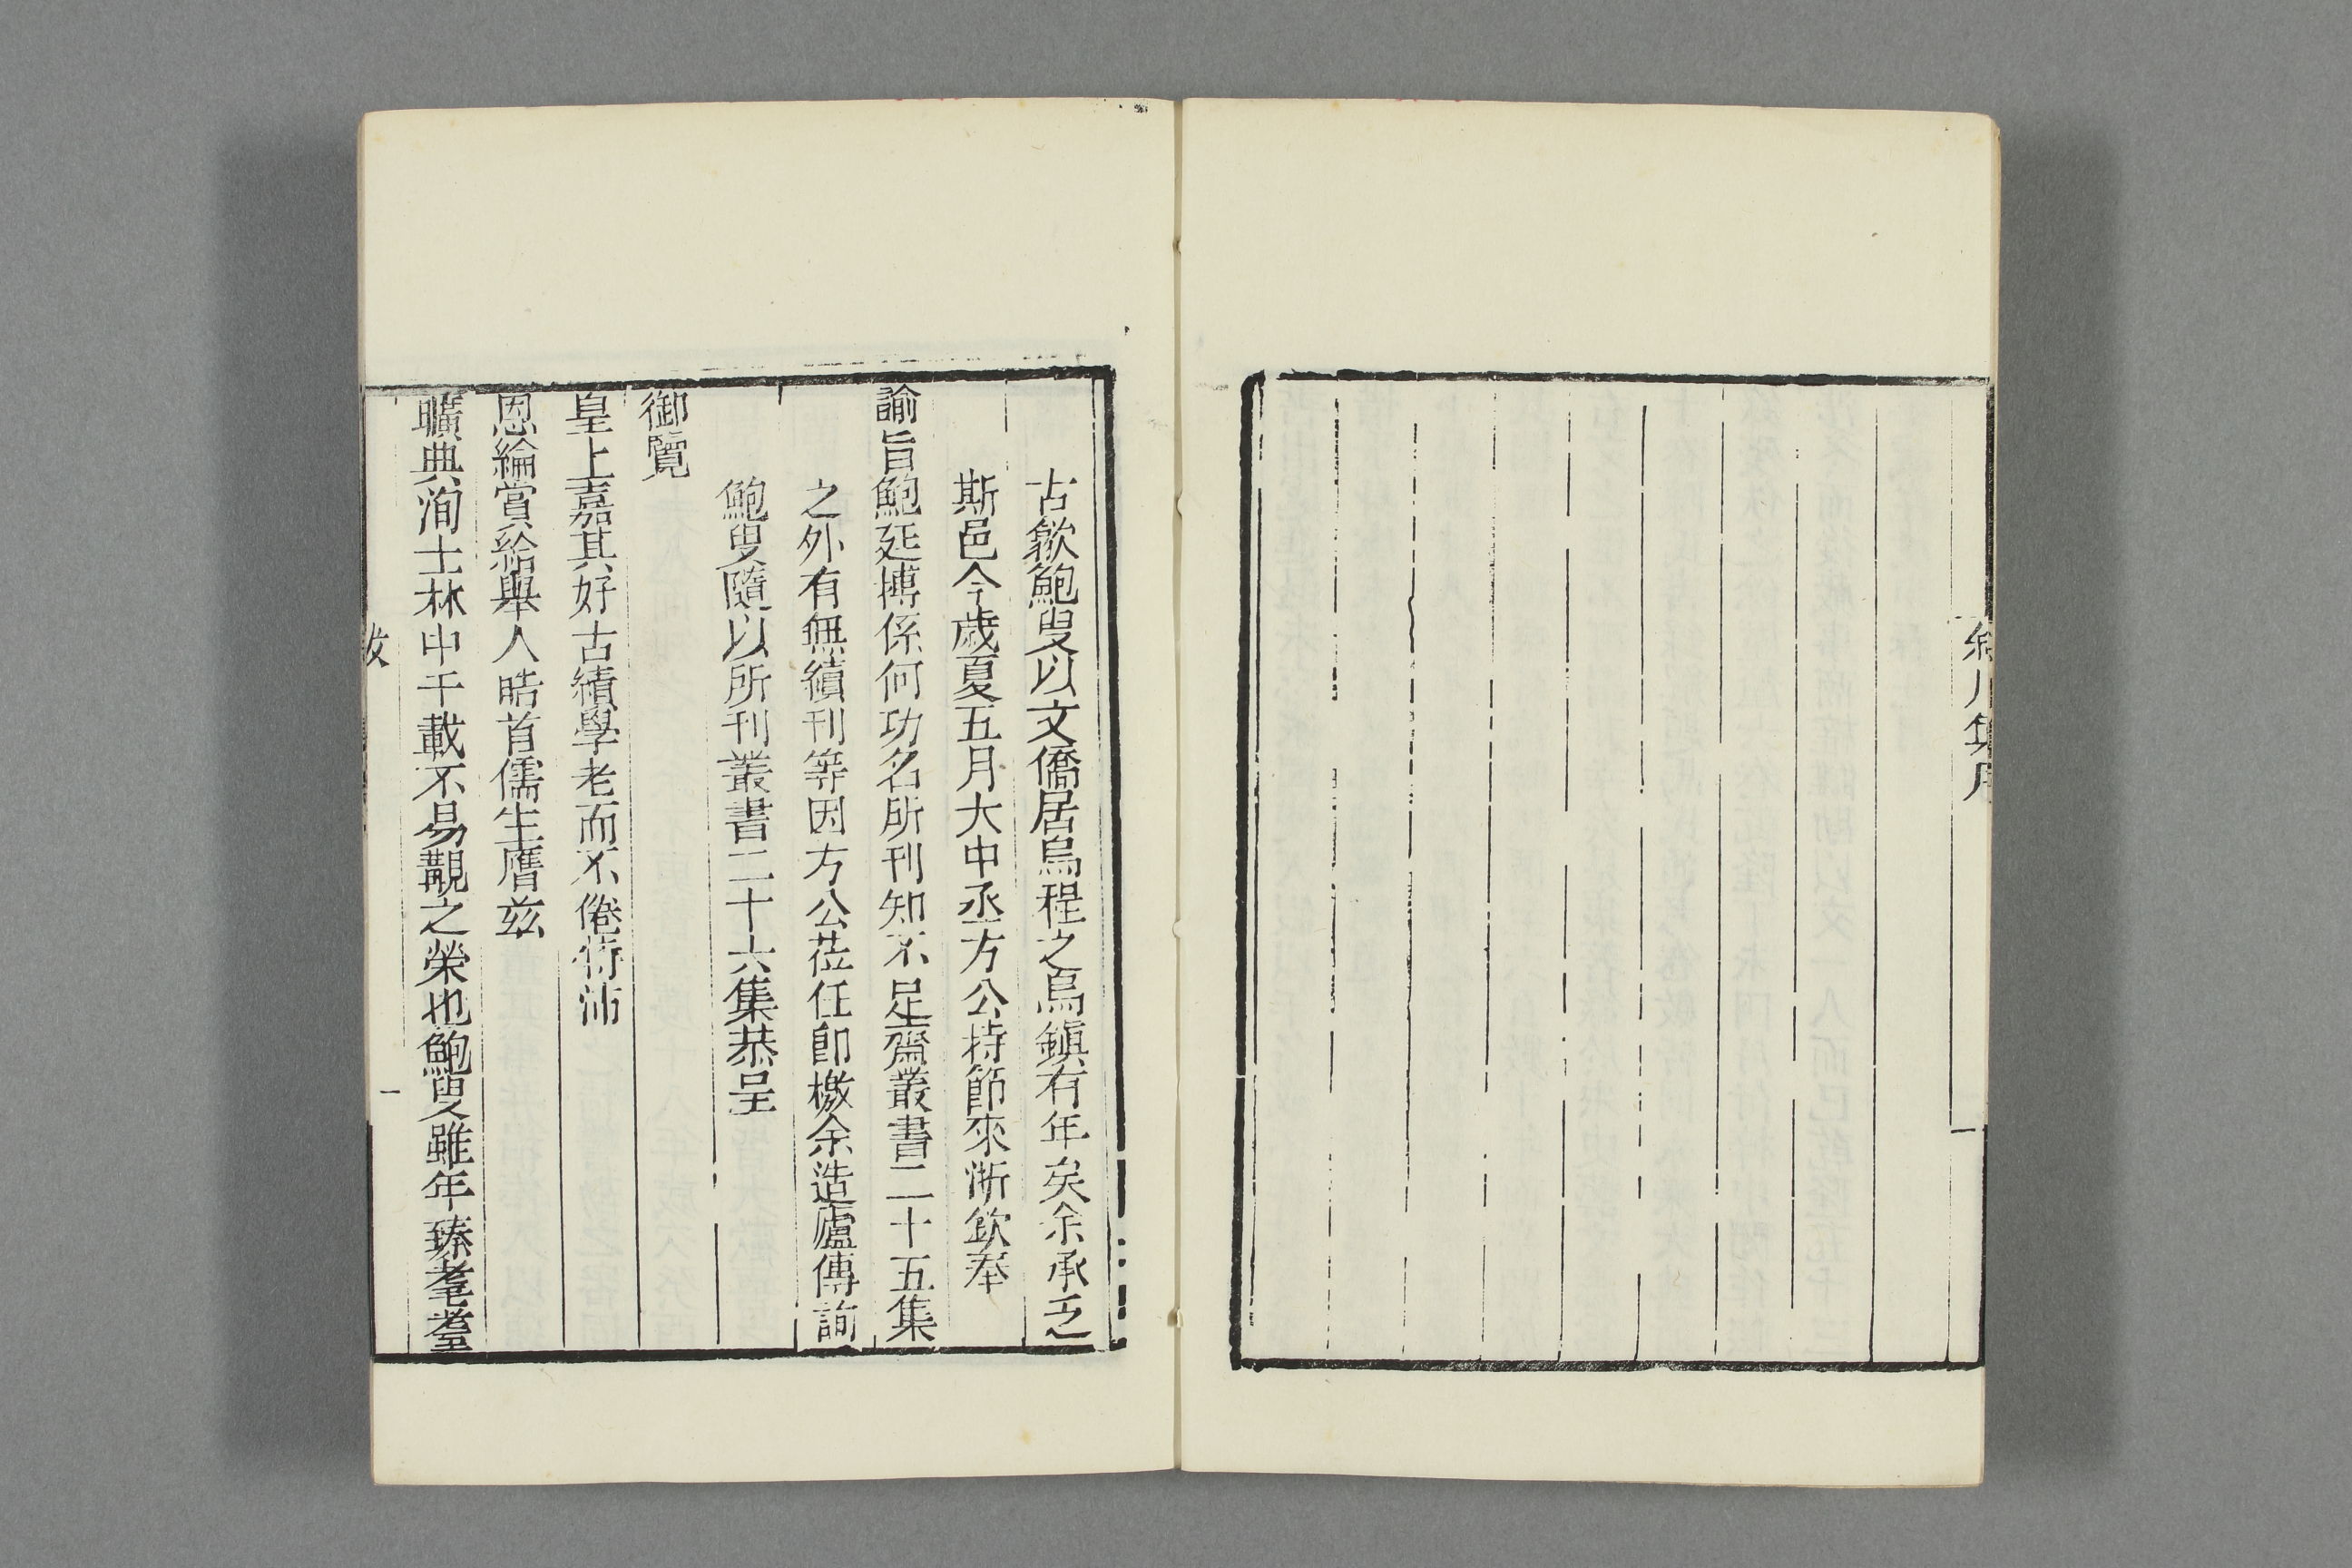 古歙鮑叟以文僑居烏程之烏鎭有年矣余承乏
斯邑今歲夏五月大中丞方公持節來浙欽奉
諭旨鮑廷博係何功名所刊知不足齋叢書二十五集
之外有無續刊等因方公莅任卽檄余造廬傳詢
鮑叟隨以所刊叢書二十六集恭呈
御覽
皇上嘉其好古績學老而不倦特沛
恩綸賞給舉人晧首儒生膺兹
曠典洵士林中千載不易覯之榮也鮑叟雖年臻耄耋
一